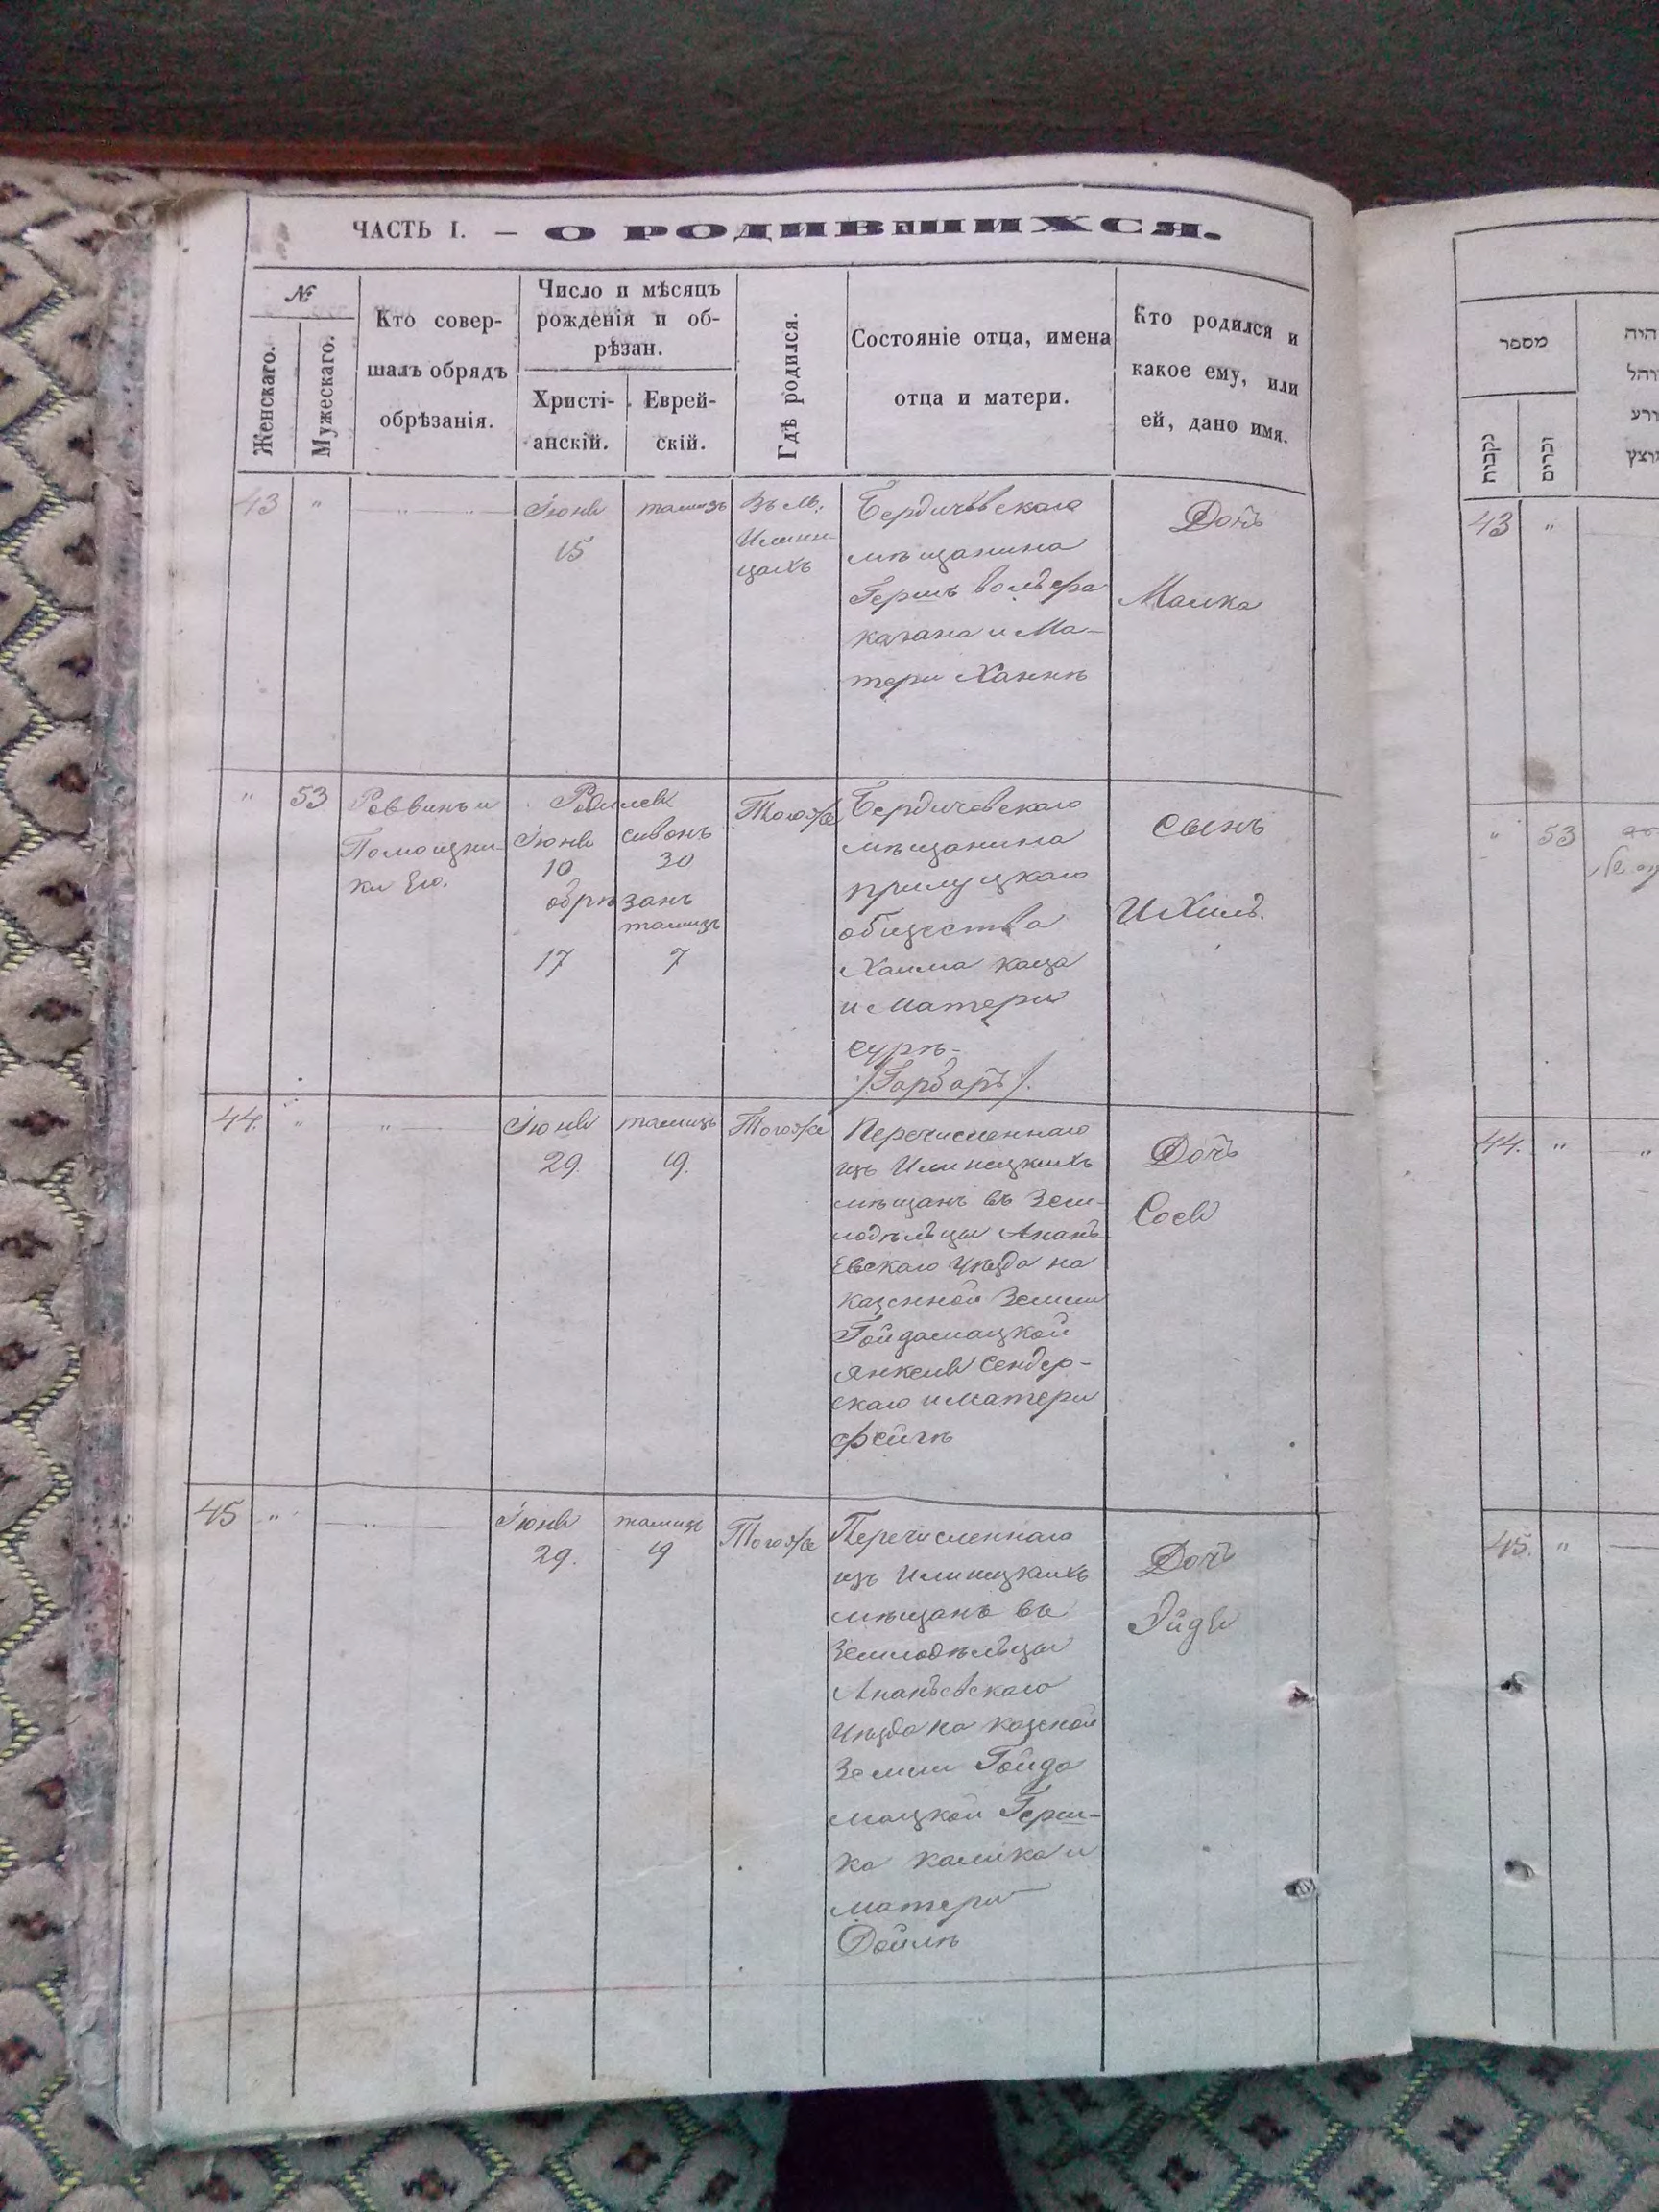 ЧАСТЬ I. — О РОДИВШИХСЯ.
№
Женскаго.
Мужескаго.
Кто совер-
шалъ обрядъ
обрѣзанія.
Число и мѣсяцъ
рожденія и об-
рѣзан.
Христі-
анскій.
Еврей-
скій.
Гдѣ родился.
Состояніе отца, имена
отца и матери.
Кто родился и
какое ему, или
ей, дано имя.
43 "
Іюня
15
тамизъ
Въ м.
Илин-
цахъ
Бердичевскаго
мѣщанина
Гершъ Вольфа
кагана и Ма-
тери Ханнѣ
Дочь
Малка
" 53
Раввинъ и
Помощни-
ки Его.
Родился
Іюня сивонъ
10 30
обрѣзанъ
тамизъ
17 7
Тогоже
Бердичевскаго
мѣщанина
прилуцкаго
общества
Хаима каца
и Матери
сурѣ-
/Гарбаръ/.
Сынъ
Ихиль.
44. "
Іюня тамизъ
29. 19.
Тогоже
Перечисленнаго
изъ Илинецкихъ
мѣщанъ въ Зем-
лодѣльцы Анань-
Евскаго уѣзда на
казенной Земли
Гойдамацкой
Янкеля Сендер-
скаго и матери
фейгѣ
Дочь
Сося
45 "
Іюня тамизъ
29. 19
Тогоже
Перечисленнаго
изъ Илинецкихъ
мѣщанъ въ
Землодѣльцы
Ананьевскаго
Уѣзда на казеной
Земли Гойда
мацкой Герш-
ка
матери
Дочь
Эйдя
מספר
נקבות
זכרים
היה
43 "
" 53
44. "
45. "